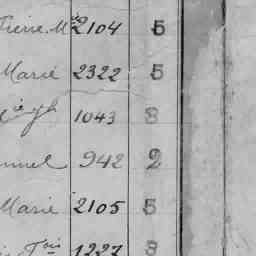 Pierre M 2104 5
Marie 2322 5
1043 3
942 2
Marie 2105 5
1227 3